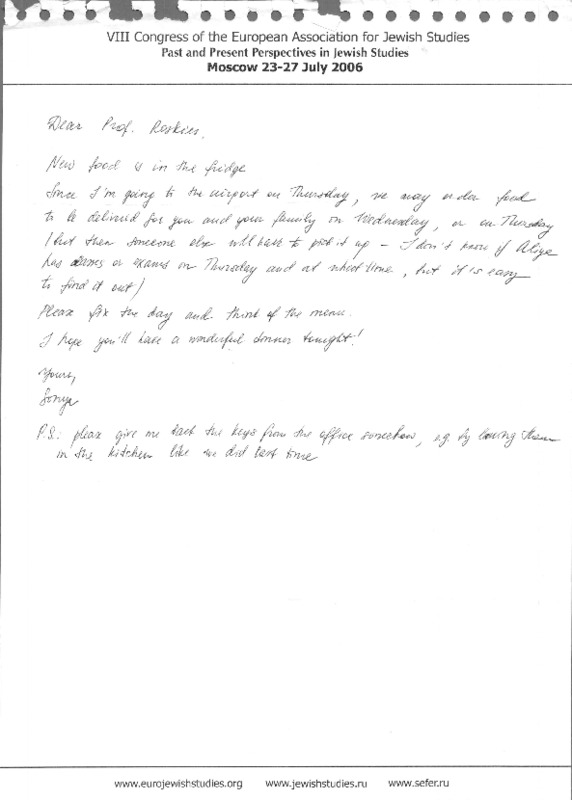 VIII Congress of the European Association for Jewish Studies
Past and Present Perspectives in Jewish Studies
Moscow 23-27 July 2006
Dear Prof. Roskies,
New food is in the fridge
Since I'm going to the airport on Thursday, we may order food
to be delivered for you and your family on Wednesday, or on Thursday
(but then someone else will have to pick it up – I don't know if Aliya
has classes or exams on Thursday and at what time, but it is easy
to find it out)
Please fix the day and think of the menu.
I hope you'll have a wonderful dinner tonight!
Yours,
Sonya
P.S.: please give me back the keys from the office somehow, e.g. by leaving them
in the kitchen like we did last time
www.eurojewishstudies.org www.jewishstudies.ru www.sefer.ru